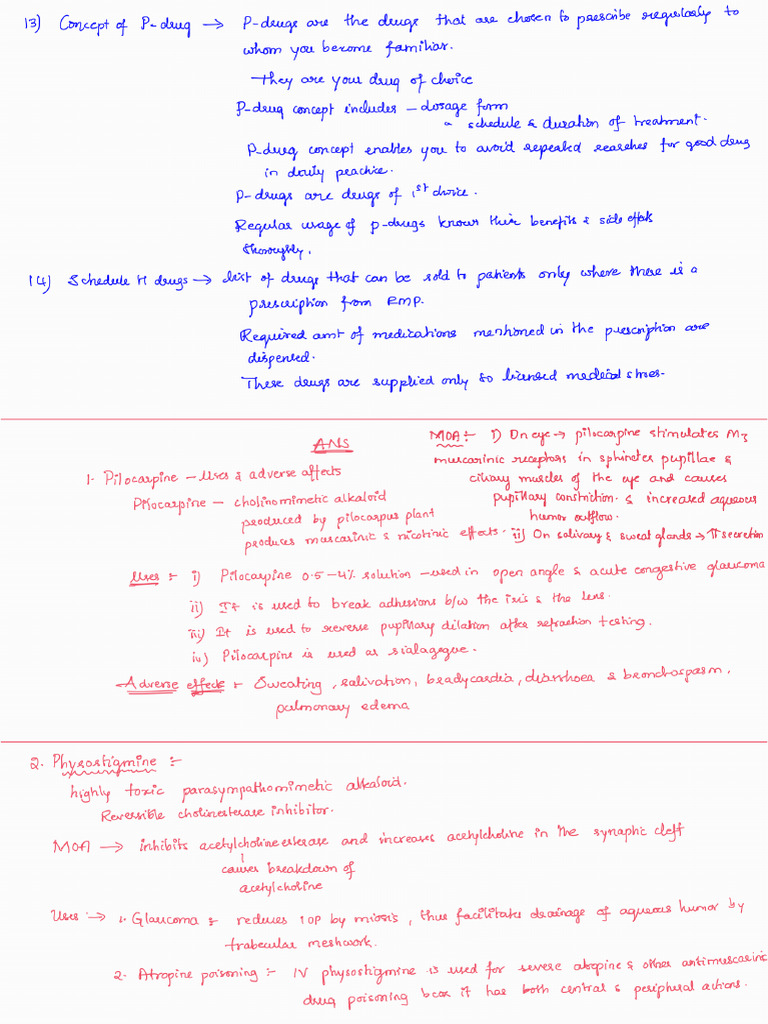 13) Concept of P-drug → P-drugs are the drugs that are chosen to prescribe regularly to
whom you become familiar.
→ They are your drug of choice
P-drug concept includes - dosage form
" schedule & duration of treatment.
P-drug concept enables you to avoid repeated searches for good drug
in daily practice.
P-drugs are drugs of 1st choice.
Regular usage of p-drugs knows their benefits & side effects
thoroughly.
14) Schedule H drugs → list of drugs that can be sold to patients only where there is a
prescription from RMP.
Required amt of medications mentioned in the prescription are
dispensed.
These drugs are supplied only so licensed medical stores.
ANS
1. Pilocarpine - uses & adverse affects
Pilocarpine - cholinomimetic alkaloid
produced by pilocarpus plant
produces muscarinic & nicotinic effects.
MOA :- i) On eye → pilocarpine stimulates M3
muscarinic receptors in sphincter pupillae &
ciliary muscles of the eye and causes
pupillary constriction. & increased aqueous
humor outflow.
ii) On salivary & sweat glands → ↑↑ secretion
Uses :- i) Pilocarpine 0.5-4% solution - used in open angle & acute congestive glaucoma
ii) It is used to break adhesions b/w the iris & the lens.
iii) It is used to reverse pupillary dilation after refraction testing.
iv) Pilocarpine is used as sialagogue.
Adverse effects :- Sweating, salivation, bradycardia, diarrhoea & bronchospasm,
pulmonary edema
2. Physostigmine :-
highly toxic parasympathomimetic alkaloid.
Reversible cholinesterase inhibitor.
MOA → inhibits acetylcholine esterase and increases acetylcholine in the synaphic cleft
↓
causes breakdown of
acetylcholine
Uses :→ 1. Glaucoma :- reduces IOP by miosis, thus facilitates drainage of aqueous humor by
trabecular meshwork.
2. Atropine poisoning :- IV physostigmine is used for severe atropine & other antimuscarinic
drug poisoning bcoz it has both central & peripheral actions.